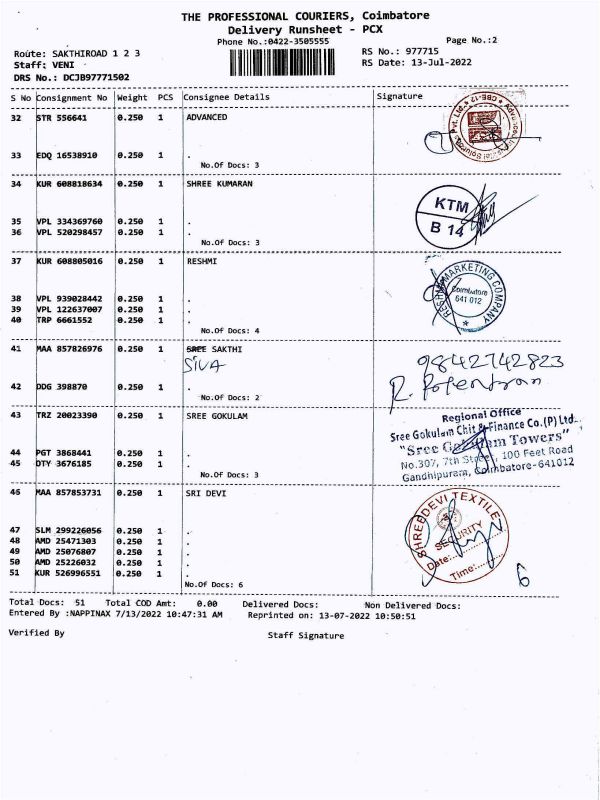 THE PROFESSIONAL COURIERS, Coimbatore
Delivery Runsheet - PCX
Phone No.:0422-3505555
Page No.:2
Route: SAKTHIROAD 1 2 3
RS No.: 977715
Staff: VENI
RS Date: 13-Jul-2022
DRS No.: DCJB97771502
S No Consignment No Weight PCS Consignee Details Signature
32 STR 556641 0.250 1 ADVANCED
33 EDQ 16538910 0.250 1 .
No.Of Docs: 3
34 KUR 608818634 0.250 1 SHREE KUMARAN
KTM
B 14
35 VPL 334369760 0.250 1 .
36 VPL 520298457 0.250 1 .
No.Of Docs: 3
37 KUR 608805016 0.250 1 RESHMI
RESHMI MARKETING COMPANY
Coimbatore
641 012
38 VPL 939028442 0.250 1 .
39 VPL 122637007 0.250 1 .
40 TRP 6661552 0.250 1 .
No.Of Docs: 4
41 MAA 857826976 0.250 1 SREE SAKTHI
SIVA
9842742823
42 DDG 398870 0.250 1 .
No.Of Docs: 2
43 TRZ 20023390 0.250 1 SREE GOKULAM
Regional Office
Sree Gokulam Chit & Finance Co.(P) Ltd.
"Sree Gokulam Towers"
No.307, 7th Street, 100 Feet Road
Gandhipuram, Coimbatore-641012
44 PGT 3868441 0.250 1 .
45 DTY 3676185 0.250 1 .
No.Of Docs: 3
46 MAA 857853731 0.250 1 SRI DEVI
SHREEDEVI TEXTILE
SECURITY
Date:
Time:
6
47 SLM 299226056 0.250 1 .
48 AMD 25471303 0.250 1 .
49 AMD 25076807 0.250 1 .
50 AMD 25226032 0.250 1 .
51 KUR 526996551 0.250 1 .
No.Of Docs: 6
Total Docs: 51 Total COD Amt: 0.00 Delivered Docs: Non Delivered Docs:
Entered By :NAPPINAX 7/13/2022 10:47:31 AM Reprinted on: 13-07-2022 10:50:51
Verified By Staff Signature